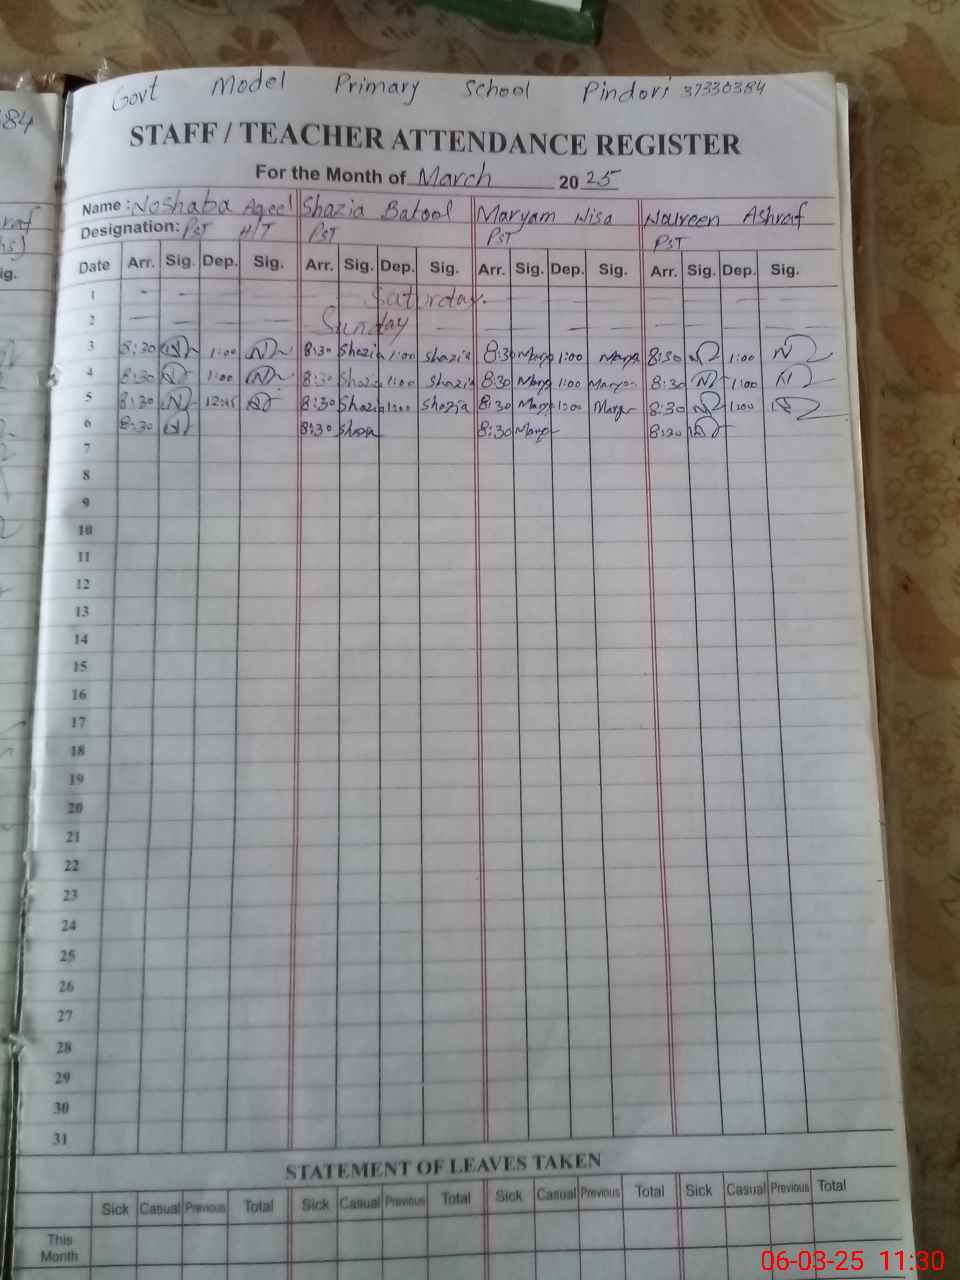 Govt Model Primary School Pindori 37330384
STAFF / TEACHER ATTENDANCE REGISTER
For the Month of March 2025
Name : Noshaba Aqeel Shazia Batool Maryam Nisa Noureen Ashraf
Designation: PST H/T PST PST PST
Date Arr. Sig. Dep. Sig. Arr. Sig. Dep. Sig. Arr. Sig. Dep. Sig. Arr. Sig. Dep. Sig.
1 Saturday.
2 Sunday
3 8:30 1:00 8:30 Shazia 1:00 Shazia 8:30 1:00 8:30 1:00
4 8:30 1:00 8:30 Shazia 1:00 Shazia 8:30 1:00 Maryam 8:30 1:00
5 8:30 12:45 8:30 Shazia 1:00 Shazia 8:30 1:00 8:30 1:00
6 8:30 8:30 8:30 8:30
7
8
9
10
11
12
13
14
15
16
17
18
19
20
21
22
23
24
25
26
27
28
29
30
31
STATEMENT OF LEAVES TAKEN
Sick Casual Previous Total Sick Casual Previous Total Sick Casual Previous Total Sick Casual Previous Total
This
Month
06-03-25 11:30